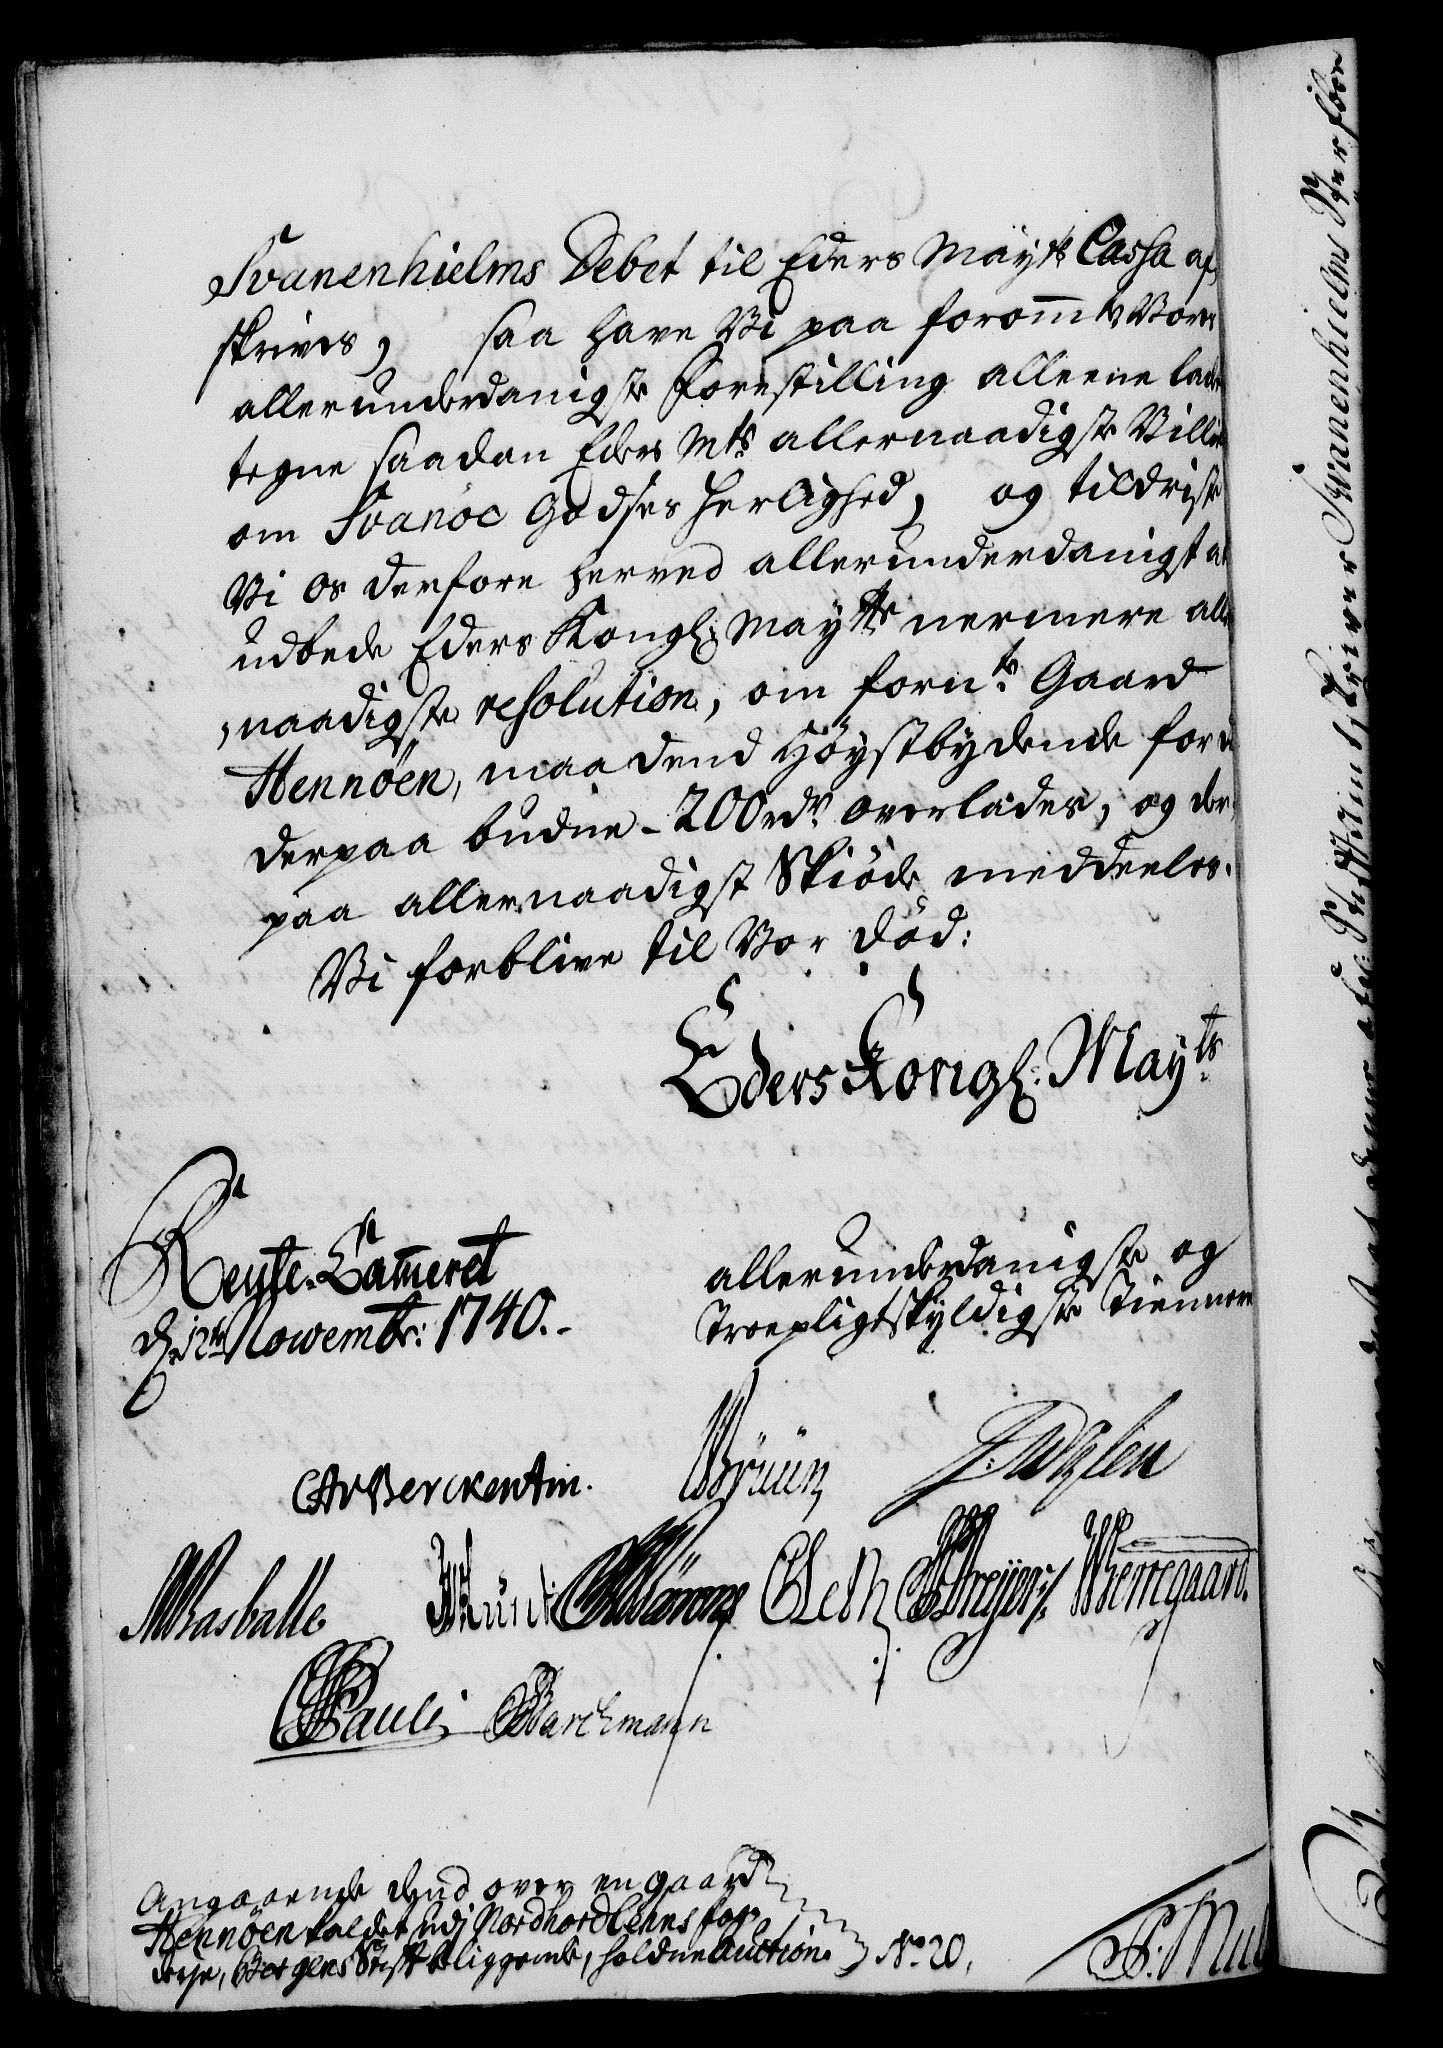 Svanenhielms Debet til Eders Mayts Cassa af,
skrives, saa have Vi paa forommte Vores
allerunderdanigste Forestilling alleene lade
tegne saadan Eders Mts allernaadigste Villie
om Svanöe Godses Herlighed, og tildriste
Vi os derfore herved allerunderdanigst at
udbede Eders Kongl: Maytts nermere aller
,naadigste resolution, om fornte Gaard
Hennöen, maa dend Höystbydende for de
derpaa budne - 200 rdr overlades, og der,
paa allernaadigst Skiöde meddeeles.
Vi forblive til Vor död:
Eders Kongl: Mayts
Rente-Cammeret
d: 12te Novembr: 1740.-
allerunderdanigste og
Troepligtskyldigste Tiennere
CAvBerckentin.
Brüün
Rasballe
CPauli
Barchmann
Angaaende dend over en gaard
Hennöen kaldet udj Nordhordlehns fog,
derje, Bergens Stift beliggende, holdne Auction. No 20.
S: Mul
Svanenhielms